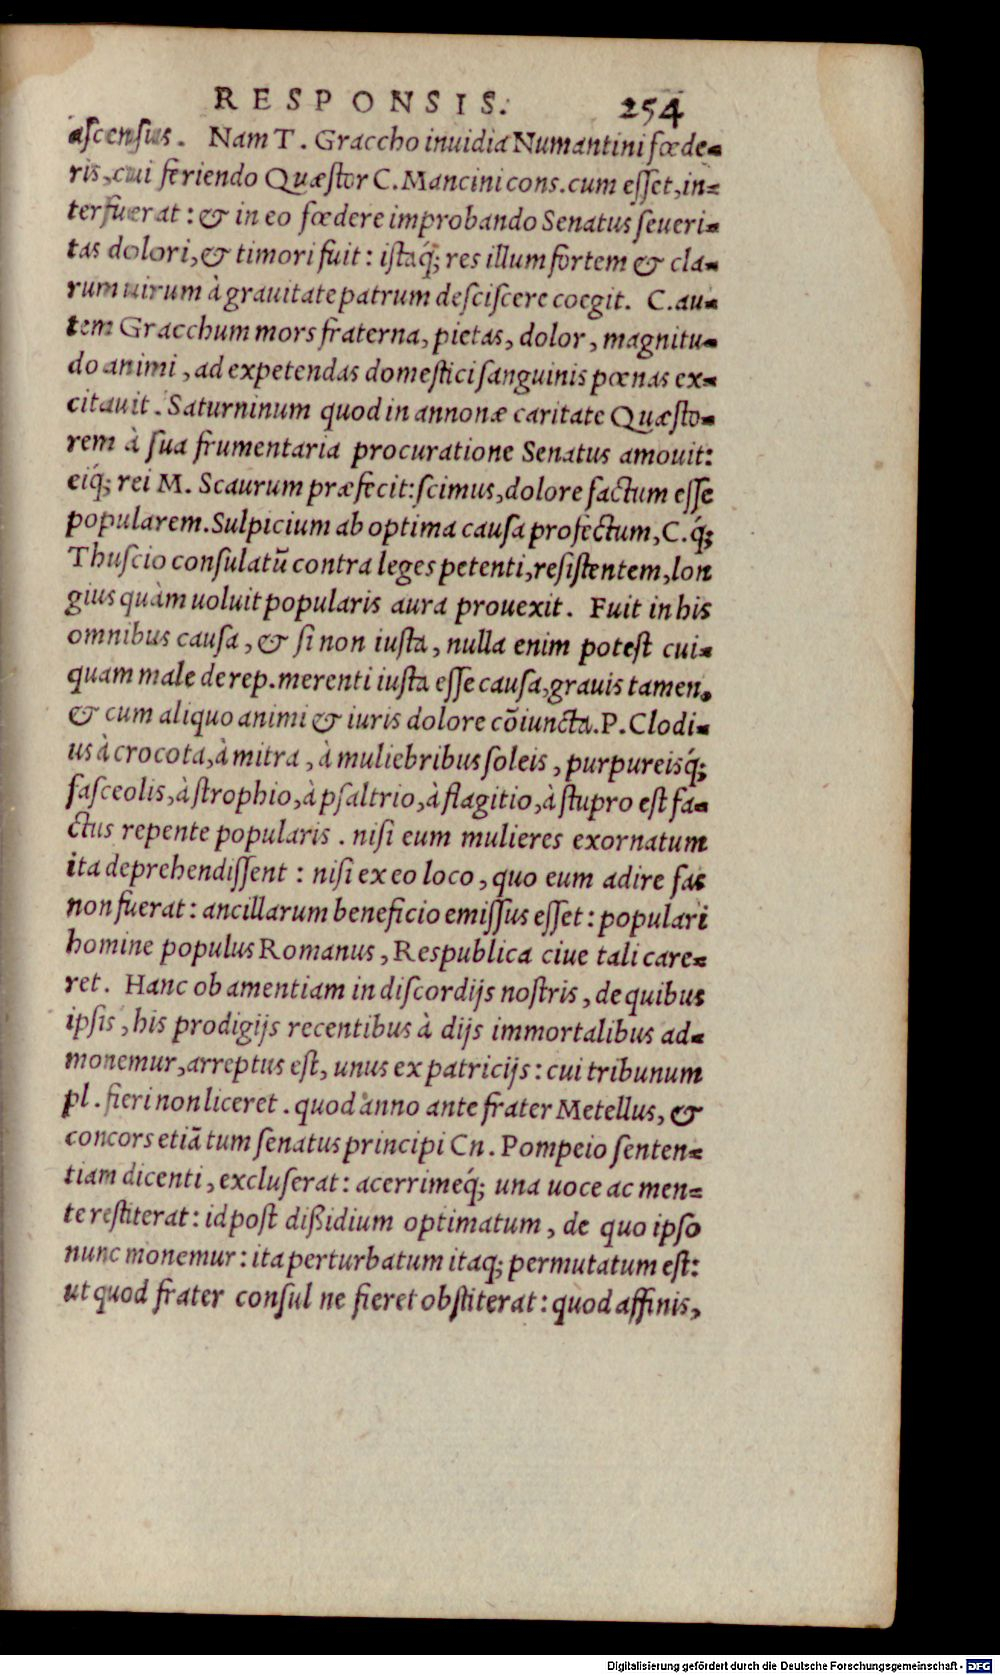 RESPONSIS. 254
ascensus. Nam T. Graccho inuidia Numantini fœde-
ris, cui feriendo Quæstor C. Mancini cons. cum esset, in-
terfuerat: & in eo fœdere improbando Senatus seueri-
tas dolori, & timori fuit: istaq́; res illum fortem & cla-
rum uirum à grauitate patrum desciscere coegit. C. au-
tem Gracchum mors fraterna, pietas, dolor, magnitu-
do animi, ad expetendas domestici sanguinis pœnas ex-
citauit. Saturninum quod in annonæ caritate Quæsto-
rem à sua frumentaria procuratione Senatus amouit:
eiq́; rei M. Scaurum præfecit: scimus, dolore factum esse
popularem. Sulpicium ab optima causa profectum, C. q́;
Thuscio consulatũ contra leges petenti, resistentem, lon
gius quàm uoluit popularis aura prouexit. Fuit in his
omnibus causa, & si non iusta, nulla enim potest cui-
quam male de rep. merenti iusta esse causa, grauis tamen,
& cum aliquo animi & iuris dolore cõiuncta. P. Clodi-
us à crocota, à mitra, à muliebribus soleis, purpureisq́;
fasceolis, à strophio, à psaltrio, à flagitio, à stupro est fa-
ctus repente popularis. nisi eum mulieres exornatum
ita deprehendissent: nisi ex eo loco, quo eum adire fas
non fuerat: ancillarum beneficio emissus esset: populari
homine populus Romanus, Respublica ciue tali care-
ret. Hanc ob amentiam in discordijs nostris, de quibus
ipsis, his prodigijs recentibus à dijs immortalibus ad-
monemur, arreptus est, unus ex patricijs: cui tribunum
pl. fieri non liceret. quod anno ante frater Metellus, &
concors etiã tum senatus principi Cn. Pompeio senten-
tiam dicenti, excluserat: acerrimeq́; una uoce ac men-
te restiterat: id post dißidium optimatum, de quo ipso
nunc monemur: ita perturbatum itaq; permutatum est:
ut quod frater consul ne fieret obstiterat: quod affinis,
Digitalisierung gefördert durch die Deutsche Forschungsgemeinschaft - DFG